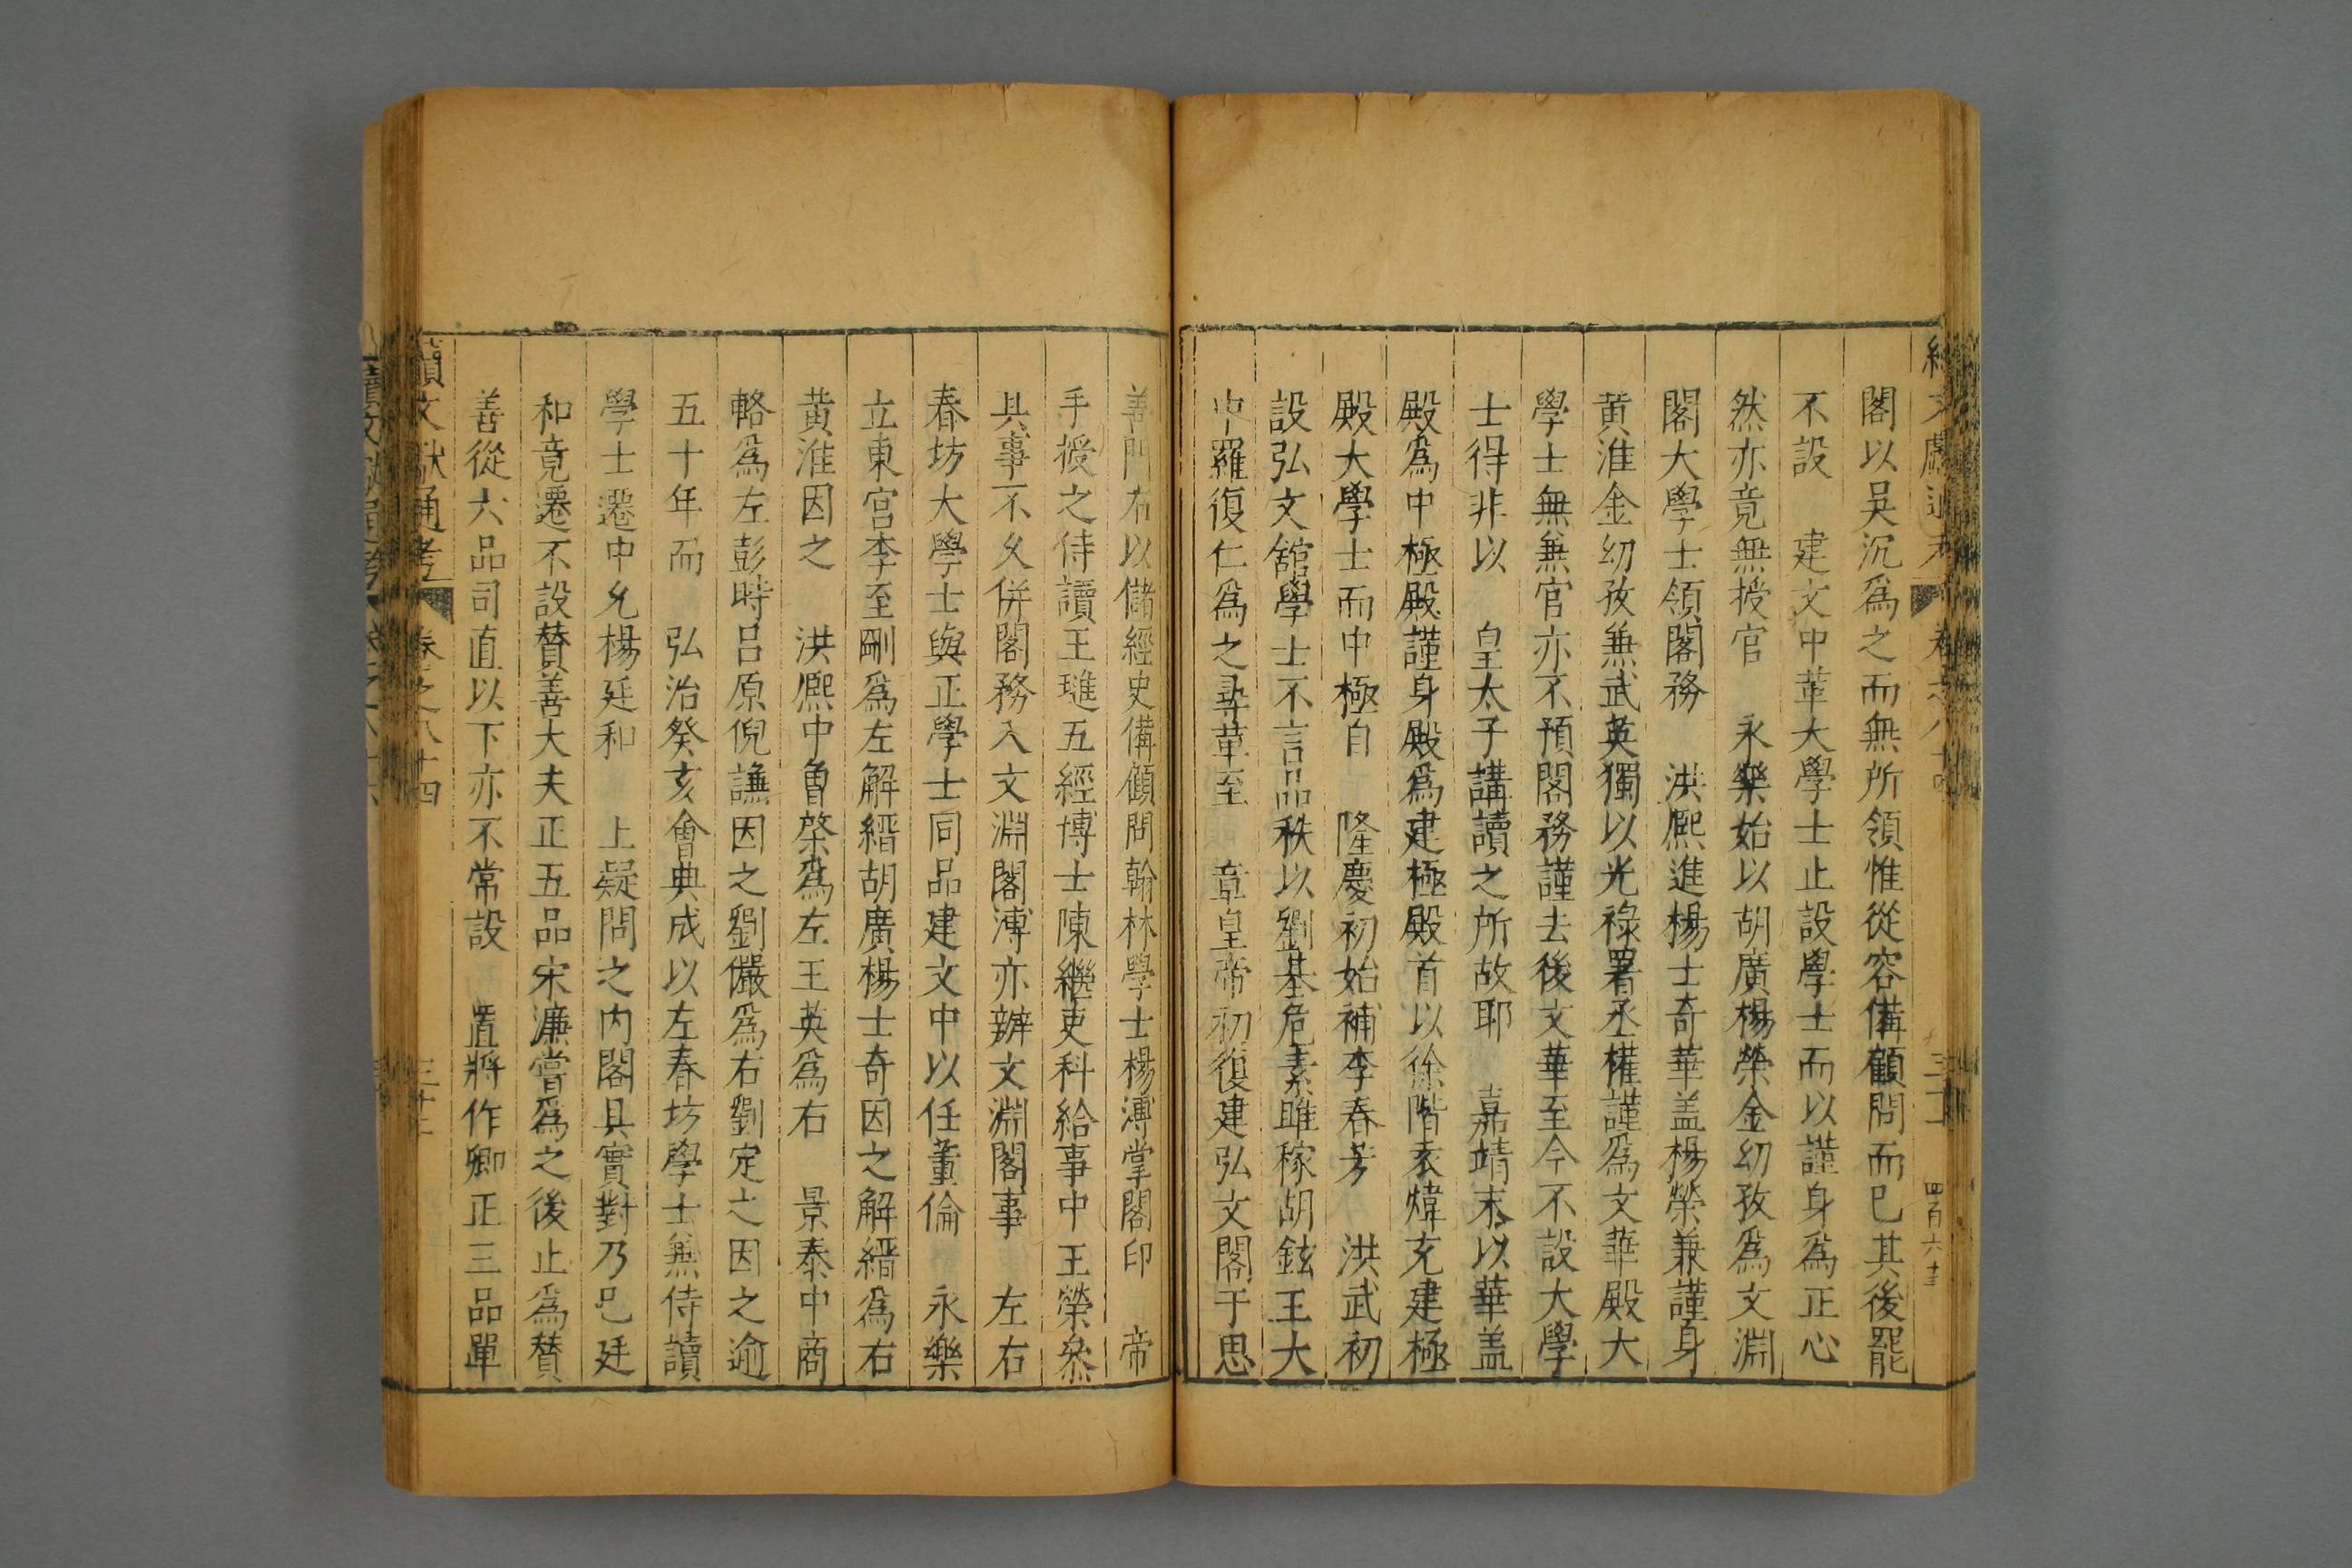 閣以吳沉爲之而無所領惟從容備顧問而已其後罷
不設 建文中革大學士止設學士而以謹身爲正心
然亦竟無授官 永樂始以胡廣楊榮金幼孜爲文淵
閣大學士領閣務 洪熈進楊士奇華盖楊榮兼謹身
黄淮金幼孜兼武英獨以光祿署丞權謹爲文華殿大
學士無兼官亦不預閣務謹去後文華至今不設大學
士得非以 皇太子講讀之所故耶 嘉靖末以華盖
殿爲中極殿謹身殿爲建極殿首以徐階袁煒充建極
殿大學士而中極自 隆慶初始補李春芳 洪武初
設弘文舘學士不言品秩以劉基危素睢稼胡鉉王大
中羅復仁爲之尋革至 章皇帝初復建弘文閣于思
善門右以儲經史備顧問翰林學士楊溥掌閣印 帝
手授之侍讀王璡五經博士陳繼吏科給事中王榮叅
其事不久併閣務入文淵閣溥亦辦文淵閣事 左右
春坊大學士與正學士同品建文中以任董倫 永樂
立東宮李至剛爲左解縉胡廣楊士奇因之解縉爲右
黄淮因之 洪熈中曾棨爲左王英爲右 景泰中商
輅爲左彭時呂原倪謙因之劉儼爲右劉定之因之逾
五十年而 弘治癸亥會典成以左春坊學士兼侍讀
學士遷中允楊廷和 上疑問之内閣具實對乃已廷
和竟遷不設賛善大夫正五品宋濂嘗爲之後止爲賛
善從六品司直以下亦不常設 置將作卿正三品單
續文獻通考 卷之八十四 三十二